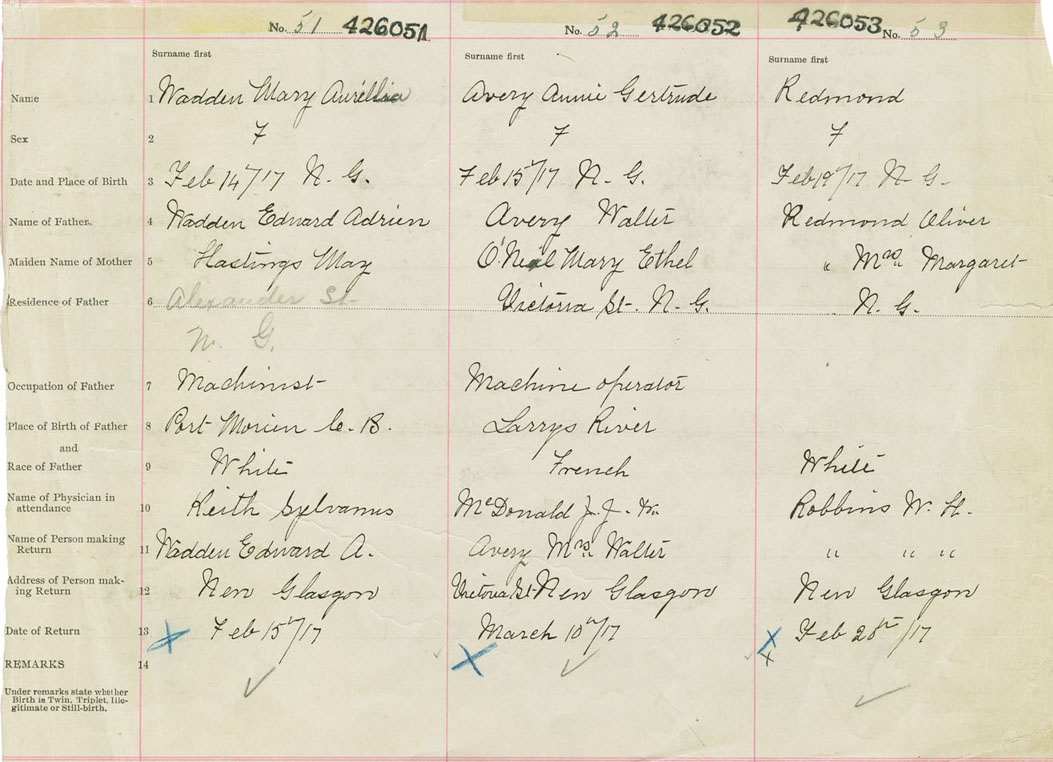 No. 51 426051 No. 52 426052 426053 No. 53
Surname first Surname first Surname first
Name 1 Wadden Mary Aurellia Avery Annie Gertrude Redmond
Sex 2 F F F
Date and Place of Birth 3 Feb 14/17 N. G. Feb 15/17 N. G. Feb 19/17 N G.
Name of Father 4 Wadden Edward Adrien Avery Walter Redmond Oliver
Maiden Name of Mother 5 Hastings May O'Neal Mary Ethel " Mrs. Margaret
Residence of Father 6 Alexander St. Victoria St. N. G. N. G.
N. G.
Occupation of Father 7 Machinist Machine operator
Place of Birth of Father 8 Port Morien C. B. Larrys River
and
Race of Father 9 White French White
Name of Physician in
attendance 10 Keith Sylvanus McDonald J. J. Robbins W. H.
Name of Person making
Return 11 Wadden Edward A. Avery Mrs. Walter " " "
Address of Person mak-
ing Return 12 New Glasgow Victoria St. New Glasgow New Glasgow
Date of Return 13 Feb 15/17 March 10th/17 Feb 28th/17
REMARKS 14
Under remarks state whether
Birth is Twin, Triplet, Ille-
gitimate or Still-birth.